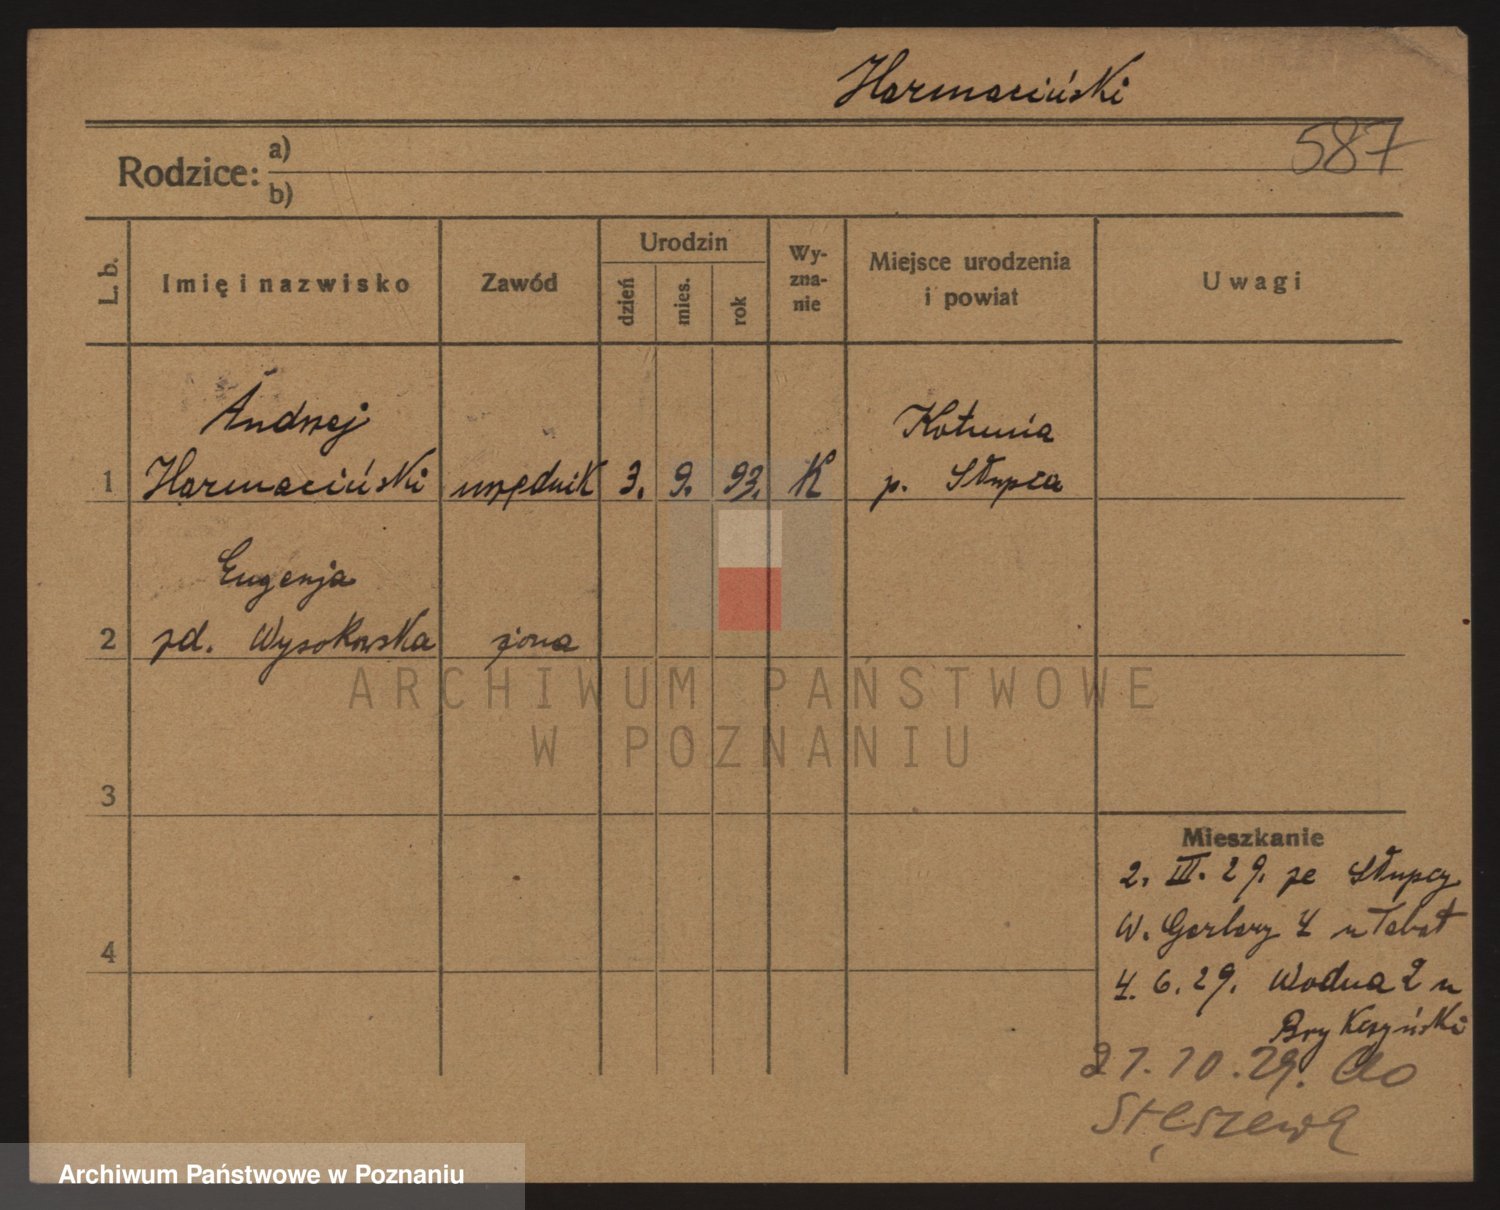 Harmaciński
587
Rodzice: a)
b)
L. b.
Imię i nazwisko
Zawód
Urodzin
dzień
mies.
rok
Wy-
zna-
nie
Miejsce urodzenia
i powiat
Uwagi
Andrzej
Kotunia
1 Harmaciński urzędnik 3. 9. 93. K p. Słupca
Eugenja
2 zd. Wysokowska żona
ARCHIWUM PAŃSTWOWE
W POZNANIU
3
Mieszkanie
2. III. 29. ze Słupcy
W. Garbary 4 u
4
4. 6. 29. Wodna 2 u
21. 10. 29. do
Stęszewa
Archiwum Państwowe w Poznaniu